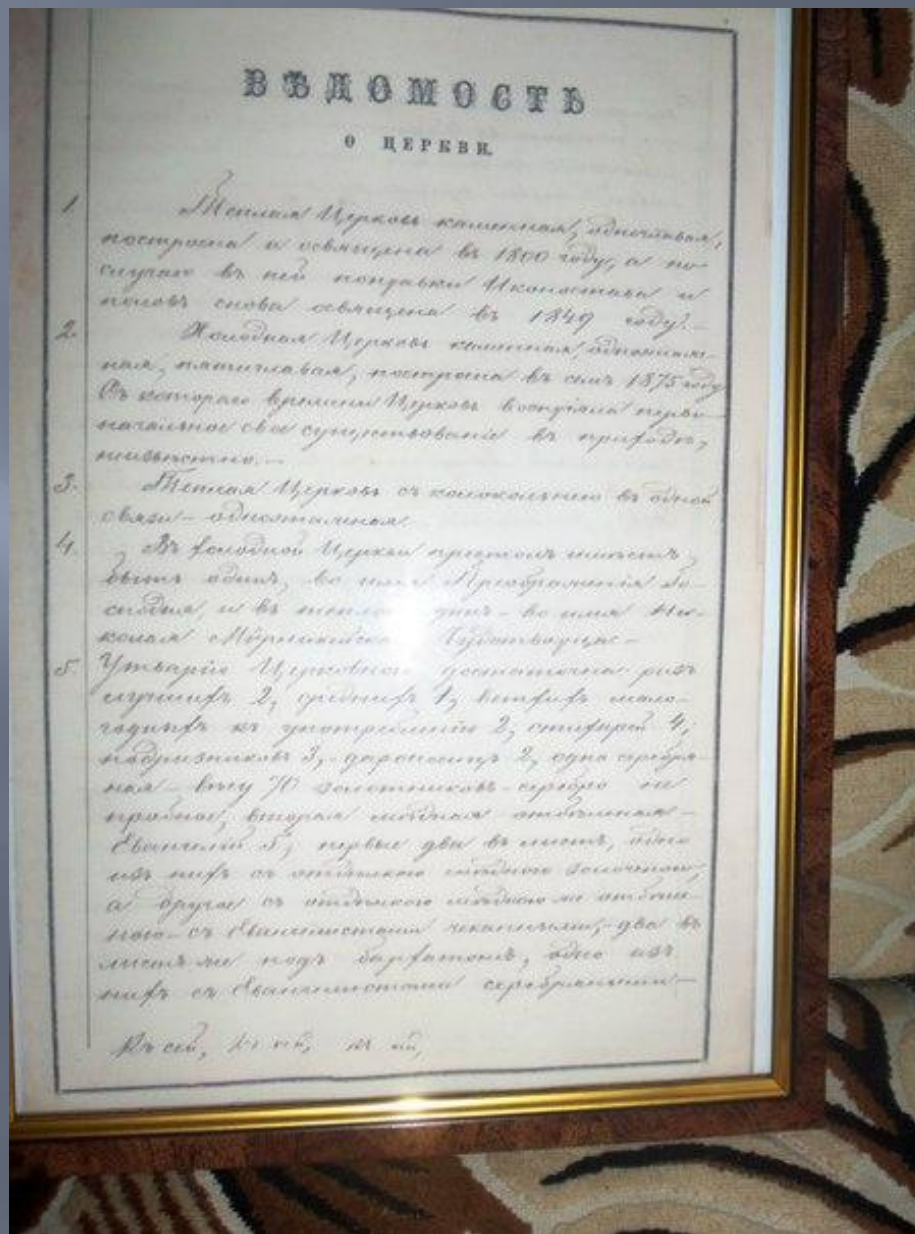 ВѢДОМОСТЬ
О ЦЕРКВИ.
1. Теплая Церковь каменная, одноглавая,
построена и освящена въ 1800 году, а по
случаю въ ней поправки Иконостаса и
половъ снова освящена въ 1849 году.—
2. Холодная Церковь каменная, одноэтаж-
ная, пятиглавая, построена въ семъ 1875 году
Съ котораго времени Церковь воспріяла перво-
начальное свое существованіе въ приходѣ,
неизвѣстно.—
3. Теплая Церковь съ колокольнею въ одной
связи — одноэтажная
4. Въ холодной Церкви престолъ имѣетъ
быть одинъ, во имя Преображенія Го-
сподня, и въ теплой одинъ — во имя Ни-
колая Мѵрликійскаго Чудотворца —
5. Утварію Церковною достаточна: ризъ
лучшихъ 2, среднихъ 1, ветхихъ мало-
годныхъ къ употребленію 2, стихарей 4,
подризниковъ 3, дароносицъ 2, одна серебря-
ная — вѣсу 70 золотниковъ — серебро не
пробное, вторая мѣдная
Евангелій 5, первые два въ листъ, одно
изъ нихъ съ мѣднаго золоченою,
а другое съ мѣдною же
ною — съ Евангелистами чеканными, — два въ
листъ же подъ бархатомъ, одно изъ
нихъ съ Евангелистами серебряными —
Къ сей,